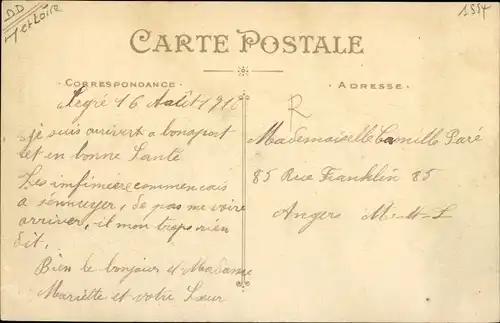 DD
M et Loire
1554
CARTE POSTALE
CORRESPONDANCE
ADRESSE
Segré 16 Août 191
R
je suis arrivert a bonaport
et en bonne Santé
Les imfimiere commencais
a s'ennuyer, de pas me voire
arriver, il mon trops rien
dit.
Bien le bonjour et Madame
Mariette et votre Sœur
Mademoiselle Camille Paré
85 Rue Franklin 85
Angers M-et-L